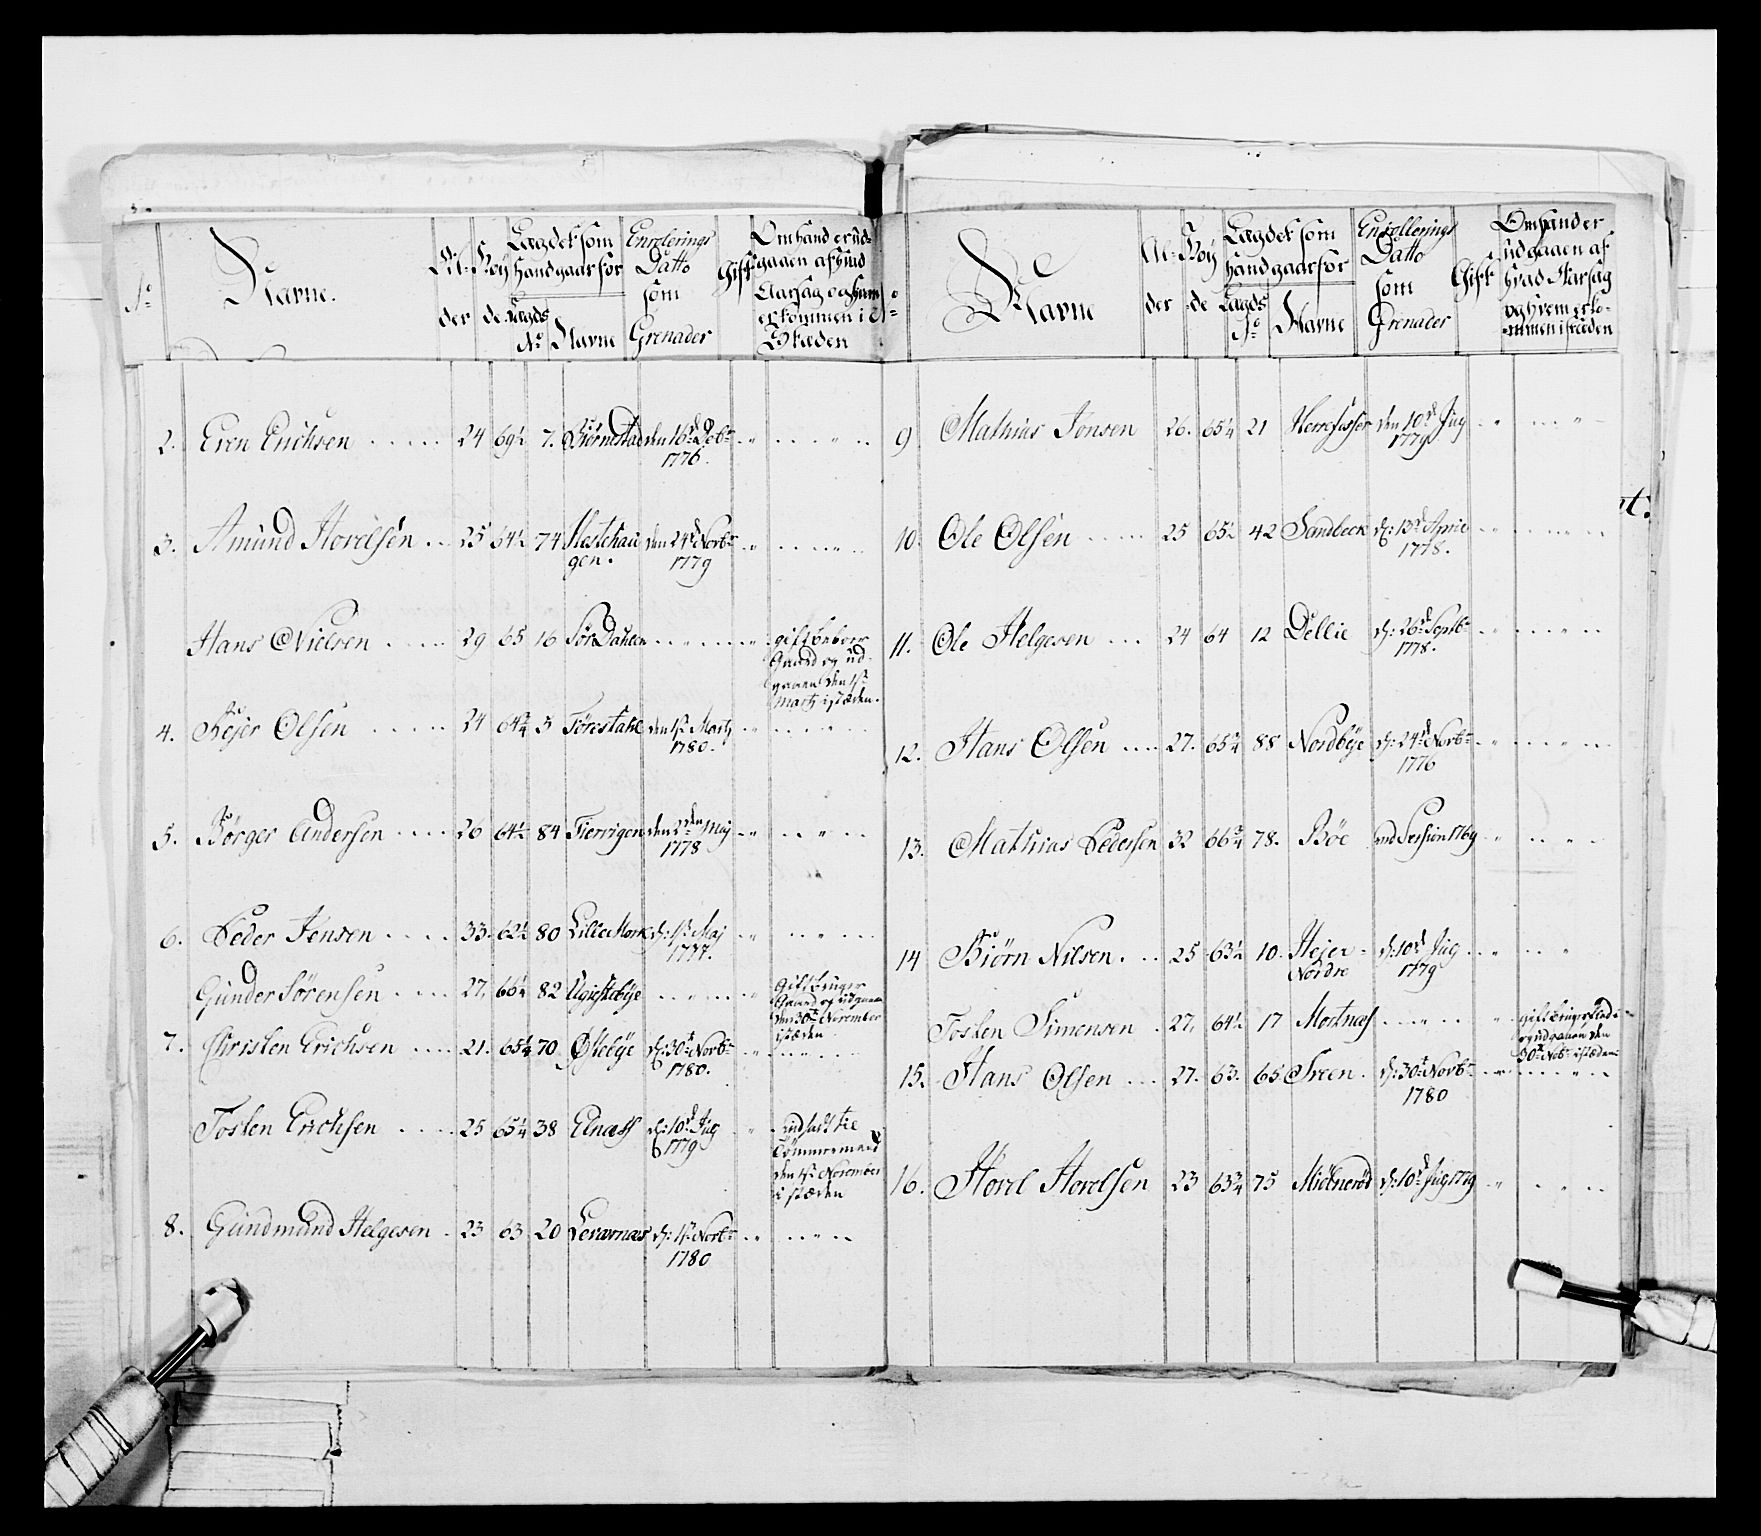 No Navne. Al- der Høy de Lagdet som hand gaar for Lagds No Navne Enrolerings Datto som Grenader Gift Om hand er ud- gaaen af hvad Aarsag og hvem er kommen i Stæden
2. Even Erichsen 24 69½ 7. Biørnstad den 16de Febr 1776.
3. Amund Hovelsen 25 64½ 74 Hestehau gen. den 24de Novbr 1779
Hans Nielsen 29 65 16 Sør Dahlen gift
Gaard og ud- gaaen den 1ste Martz i stæden.
4. Rejer Olsen 24 64¾ 3 Førestahl den 1ste Martz 1780.
5. Børger Andersen 26 64½ 84 Fierrigen den 2den Maj 1778
6. Peder Jensen 33 62½ 80 Lille Mork d: 1ste Maj 1777.
Gunder Sørensen 27. 66¼ 82 Gift bruger Gaard og udgaaen den 30te November i stæden
7. Christen Erichsen 21. 65¼ 70 Østebye d: 30te Novbr 1780.
Tosten Erichsen 25 65¼ 38 Elnæss d: 10de Jug 1779 udsadt til Tømmermand den 1ste November i stæden
8. Gundmund Helgesen 23 63 20 Levernæs d: 1ste Novbr 1780
No Navne Al- der Høy de Lagdet som hand gaar for Lagds No Navne Enrollerings Datto som Grenader Gift Om hand er udgaaen af hvad Aarsag og hvem er ko- mmen i stæden
9 Mathias Jonsen 26. 65¼ 21 den 10de Jug 1779
10. Ole Olsen 25 65½ 42 Sandbeck d: 13de April 1778.
11. Ole Helgesen 24 64 12 Dellie d: 26de Septbr 1778.
12. Hans Olsen 27. 65¾ 88 Nordbye d: 24de Novbr 1776
13. Mathias Pedersen 32 66¾ 78. Bøe ved Session 1769
14 Biørn Nilsen. 25 63½ 10. Heier- Nordre d: 10de Jug 1779
Tosten Simensen 27. 64½ 17 Mortnæs gift bruger
og udgaaen den 30te Nobr i stæden
15. Hans Olsen 27. 63. 65 Sveen. d: 30te Novbr 1780
16. Hovel Hovelsen 23 63¾ 75 Miølnerød d: 10de Jug 1779